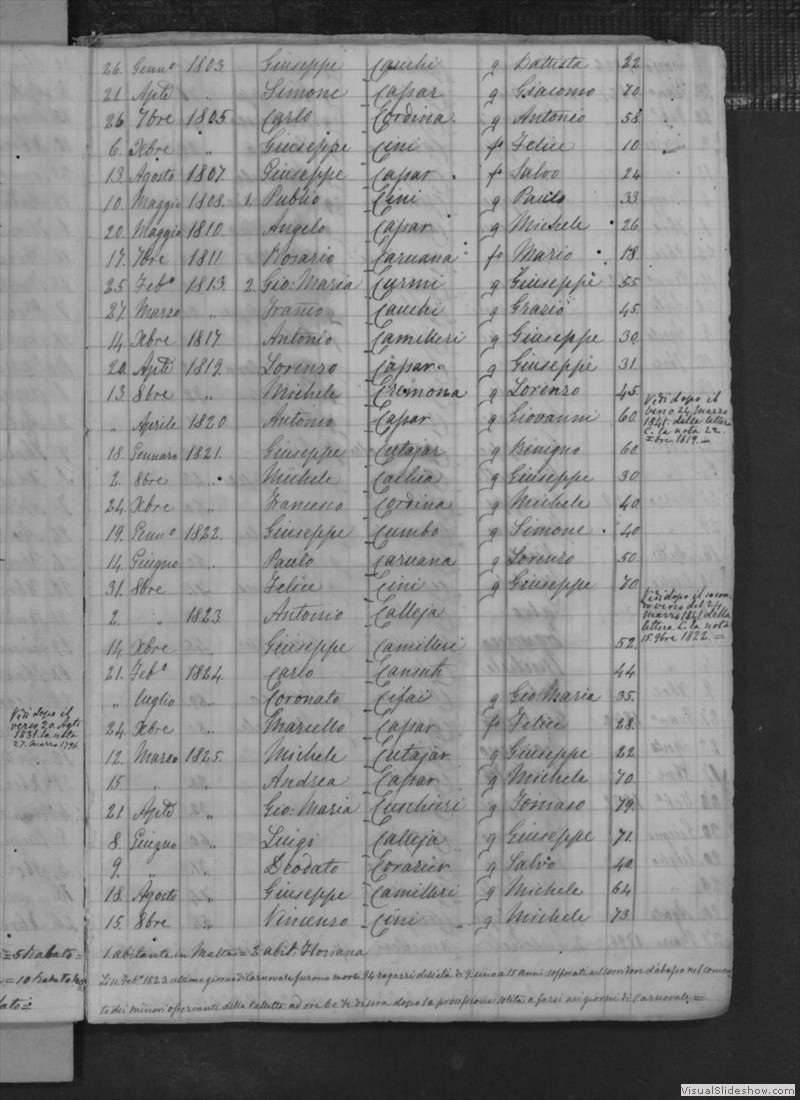 26. Genn.o 1803. Giuseppe Cauchi g Battista 22
21 Aple " Simone Capar g Giacomo 70.
26 7bre 1805. Carlo Cordina g Antonio 58.
6. Xbre " Giuseppe Cini fo Felice 10
13. Agosto 1807 Giuseppe Capar fo Salvo 24
10. Maggio 1808. 1. Publio Cini g Paulo 33
20. Maggio 1810 Angelo Capar g Michele 26.
17. 7bre 1811 Rosario Caruana fo Mario 18.
25. Feb.o 1813 2. Gio: Maria Curmi g Giuseppe 55
27. Marzo " Cauchi g Grazio 45.
14 Xbre 1817 Antonio Camilleri g Giuseppe 30.
20. Aple 1819. Lorenzo Capar g Giuseppe 31.
13. 8bre " Michele Cremona g Lorenzo 45.
" Aprile 1820 Antonio Capar g Giovanni 60.
18. Gennaro 1821. Giuseppe Cutajar g Benigno 60.
2. 8bre " Michele Cachia g Giuseppe 30
24. Xbre " Francesco Cordina g Michele 40
19. Genn.o 1822. Giuseppe Cumbo g Simone 40
14. Giugno " Paulo Caruana g Lorenzo 50.
31. 8bre Felice Cini g Giuseppe 70
2. " 1823 Antonio Calleja
14. Xbre " Giuseppe Camilleri 52.
21. Feb.o 1824. Carlo 44
" Luglio " Coronato Cifai g Gio Maria 35.
24. Xbre " Marcello Capar fo Felice 28.
12. Marzo 1825. Michele Cutajar g Giuseppe 22
15. " " Andrea Capar g Michele 70.
21 Aple " Gio: Maria Cuschieri g Tomaso 79.
8. Giugno " Luigi Calleja g Giuseppe 71.
9. " Deodato g Salvo 40.
18. Agosto " Giuseppe Camilleri g Michele 64
15. 8bre " Vincenzo Cini g Michele 73
Vidi dopo il
24 marzo
1841. della lettera
C. la nota 22.
Xbre. 1819. —
Vidi dopo il secon-
do verso del
marzo 1841. della
lettera C. la nota
15. 9bre 1822. =
Vidi dopo il
verso 20. Aple
1831. la nota
27. Marzo
= 5 Rabato =
= 10 Rabato
1. abitante in Malta = 2 abit. Floriana
Li 11 Feb.o 1823 ultimo giorno di Carnovale furono morti 94 ragazzi dell'età di 9 sino a 15 anni soffocati nel corridore d'abasso nel conven-
to dei minori osservanti della Valletta ad ore di sera dopo la processione solita a farsi nei giorni di Carnovale =
VisualSlideshow.com